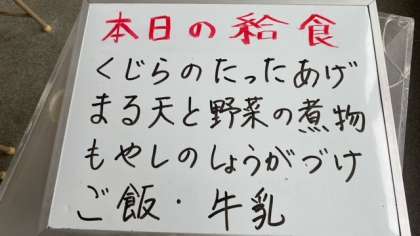 本日の給食
くじらのたったあげ
まる天と野菜の煮物
もやしのしょうがづけ
ご飯・牛乳